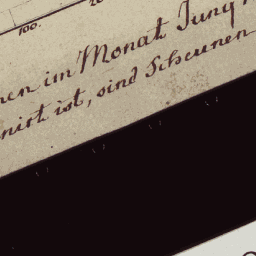 100.
en im Monat Juny
nirt ist, sind Scheunen